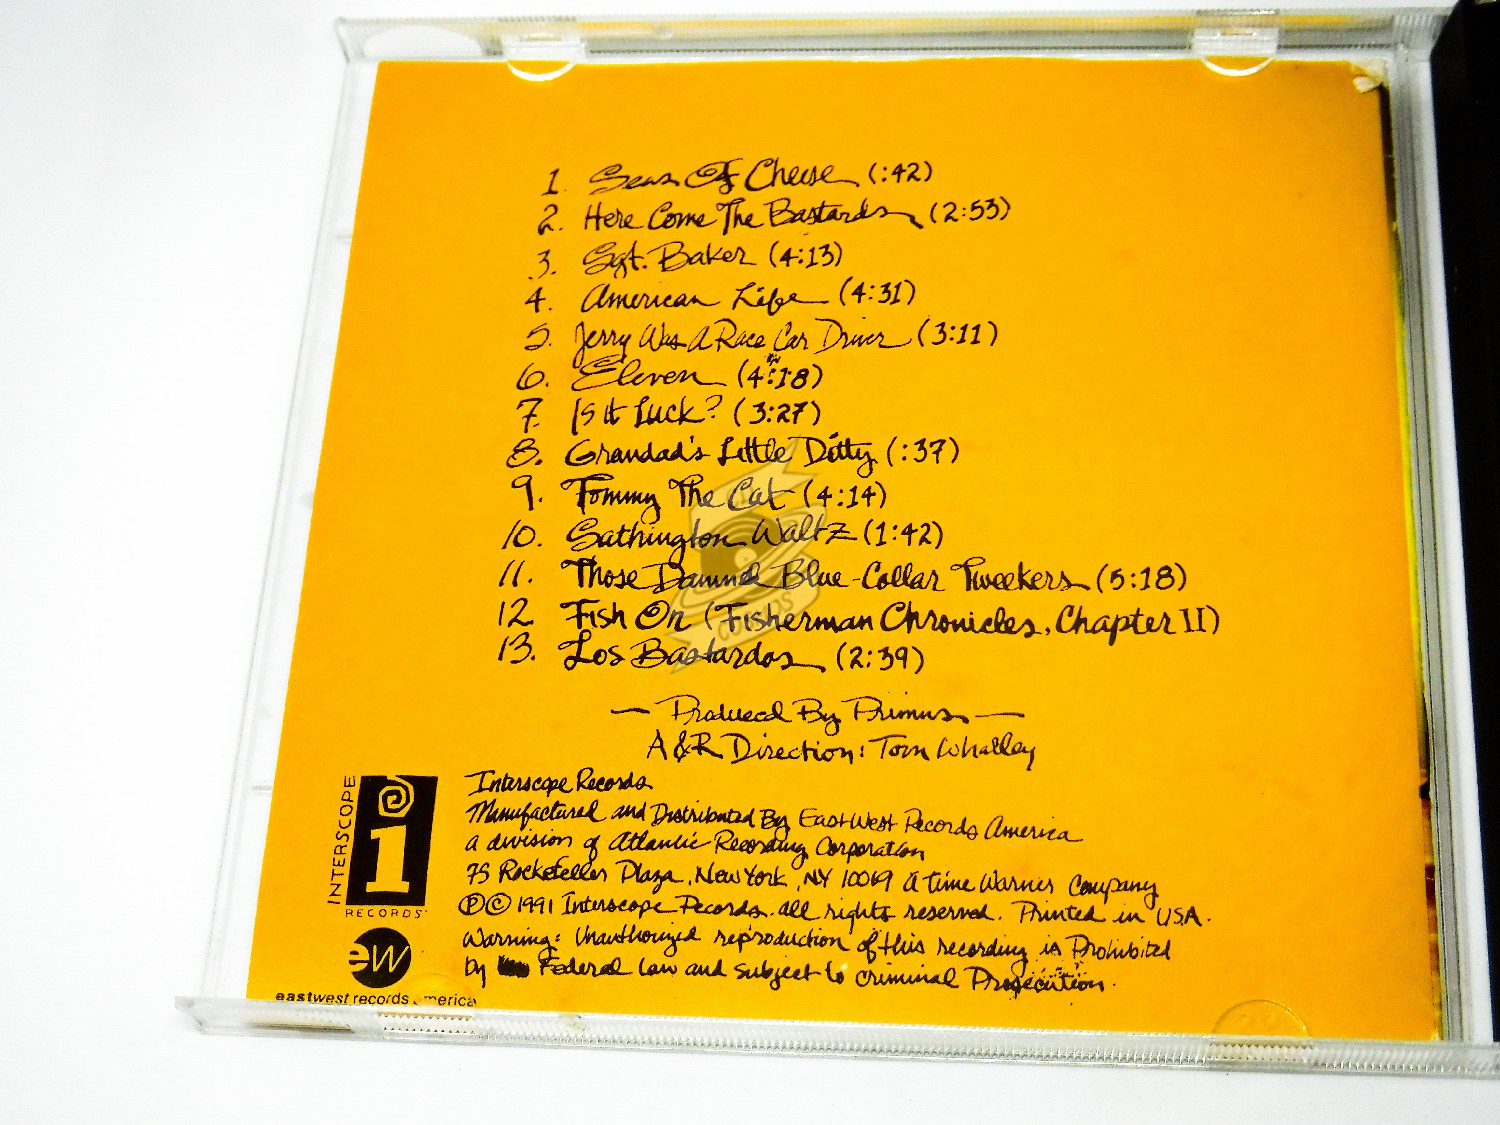 1. Seas Of Cheese (:42)
2. Here Come The Bastards (2:53)
3. Sgt. Baker (4:13)
4. American Life (4:31)
5. Jerry Was A Race Car Driver (3:11)
6. Eleven (4:18)
7. Is it Luck? (3:27)
8. Grandad's Little Ditty (:37)
9. Tommy The Cat (4:14)
10. Sathington Waltz (1:42)
11. Those Damned Blue-Collar Tweekers (5:18)
12. Fish On (Fisherman Chronicles, Chapter II)
13. Los Bastardos (2:39)
— Produced By Primus —
A&R Direction: Tom Whalley
INTERSCOPE
i
RECORDS
Interscope Records
Manufactured and Distributed By EastWest Records America
a division of Atlantic Recording Corporation
75 Rockefeller Plaza, New York, NY 10019 A Time Warner Company
℗© 1991 Interscope Records. all rights reserved. Printed in USA.
Warning: Unauthorized reproduction of this recording is Prohibited
by Federal law and subject to criminal Prosecution.
ew
eastwest records america